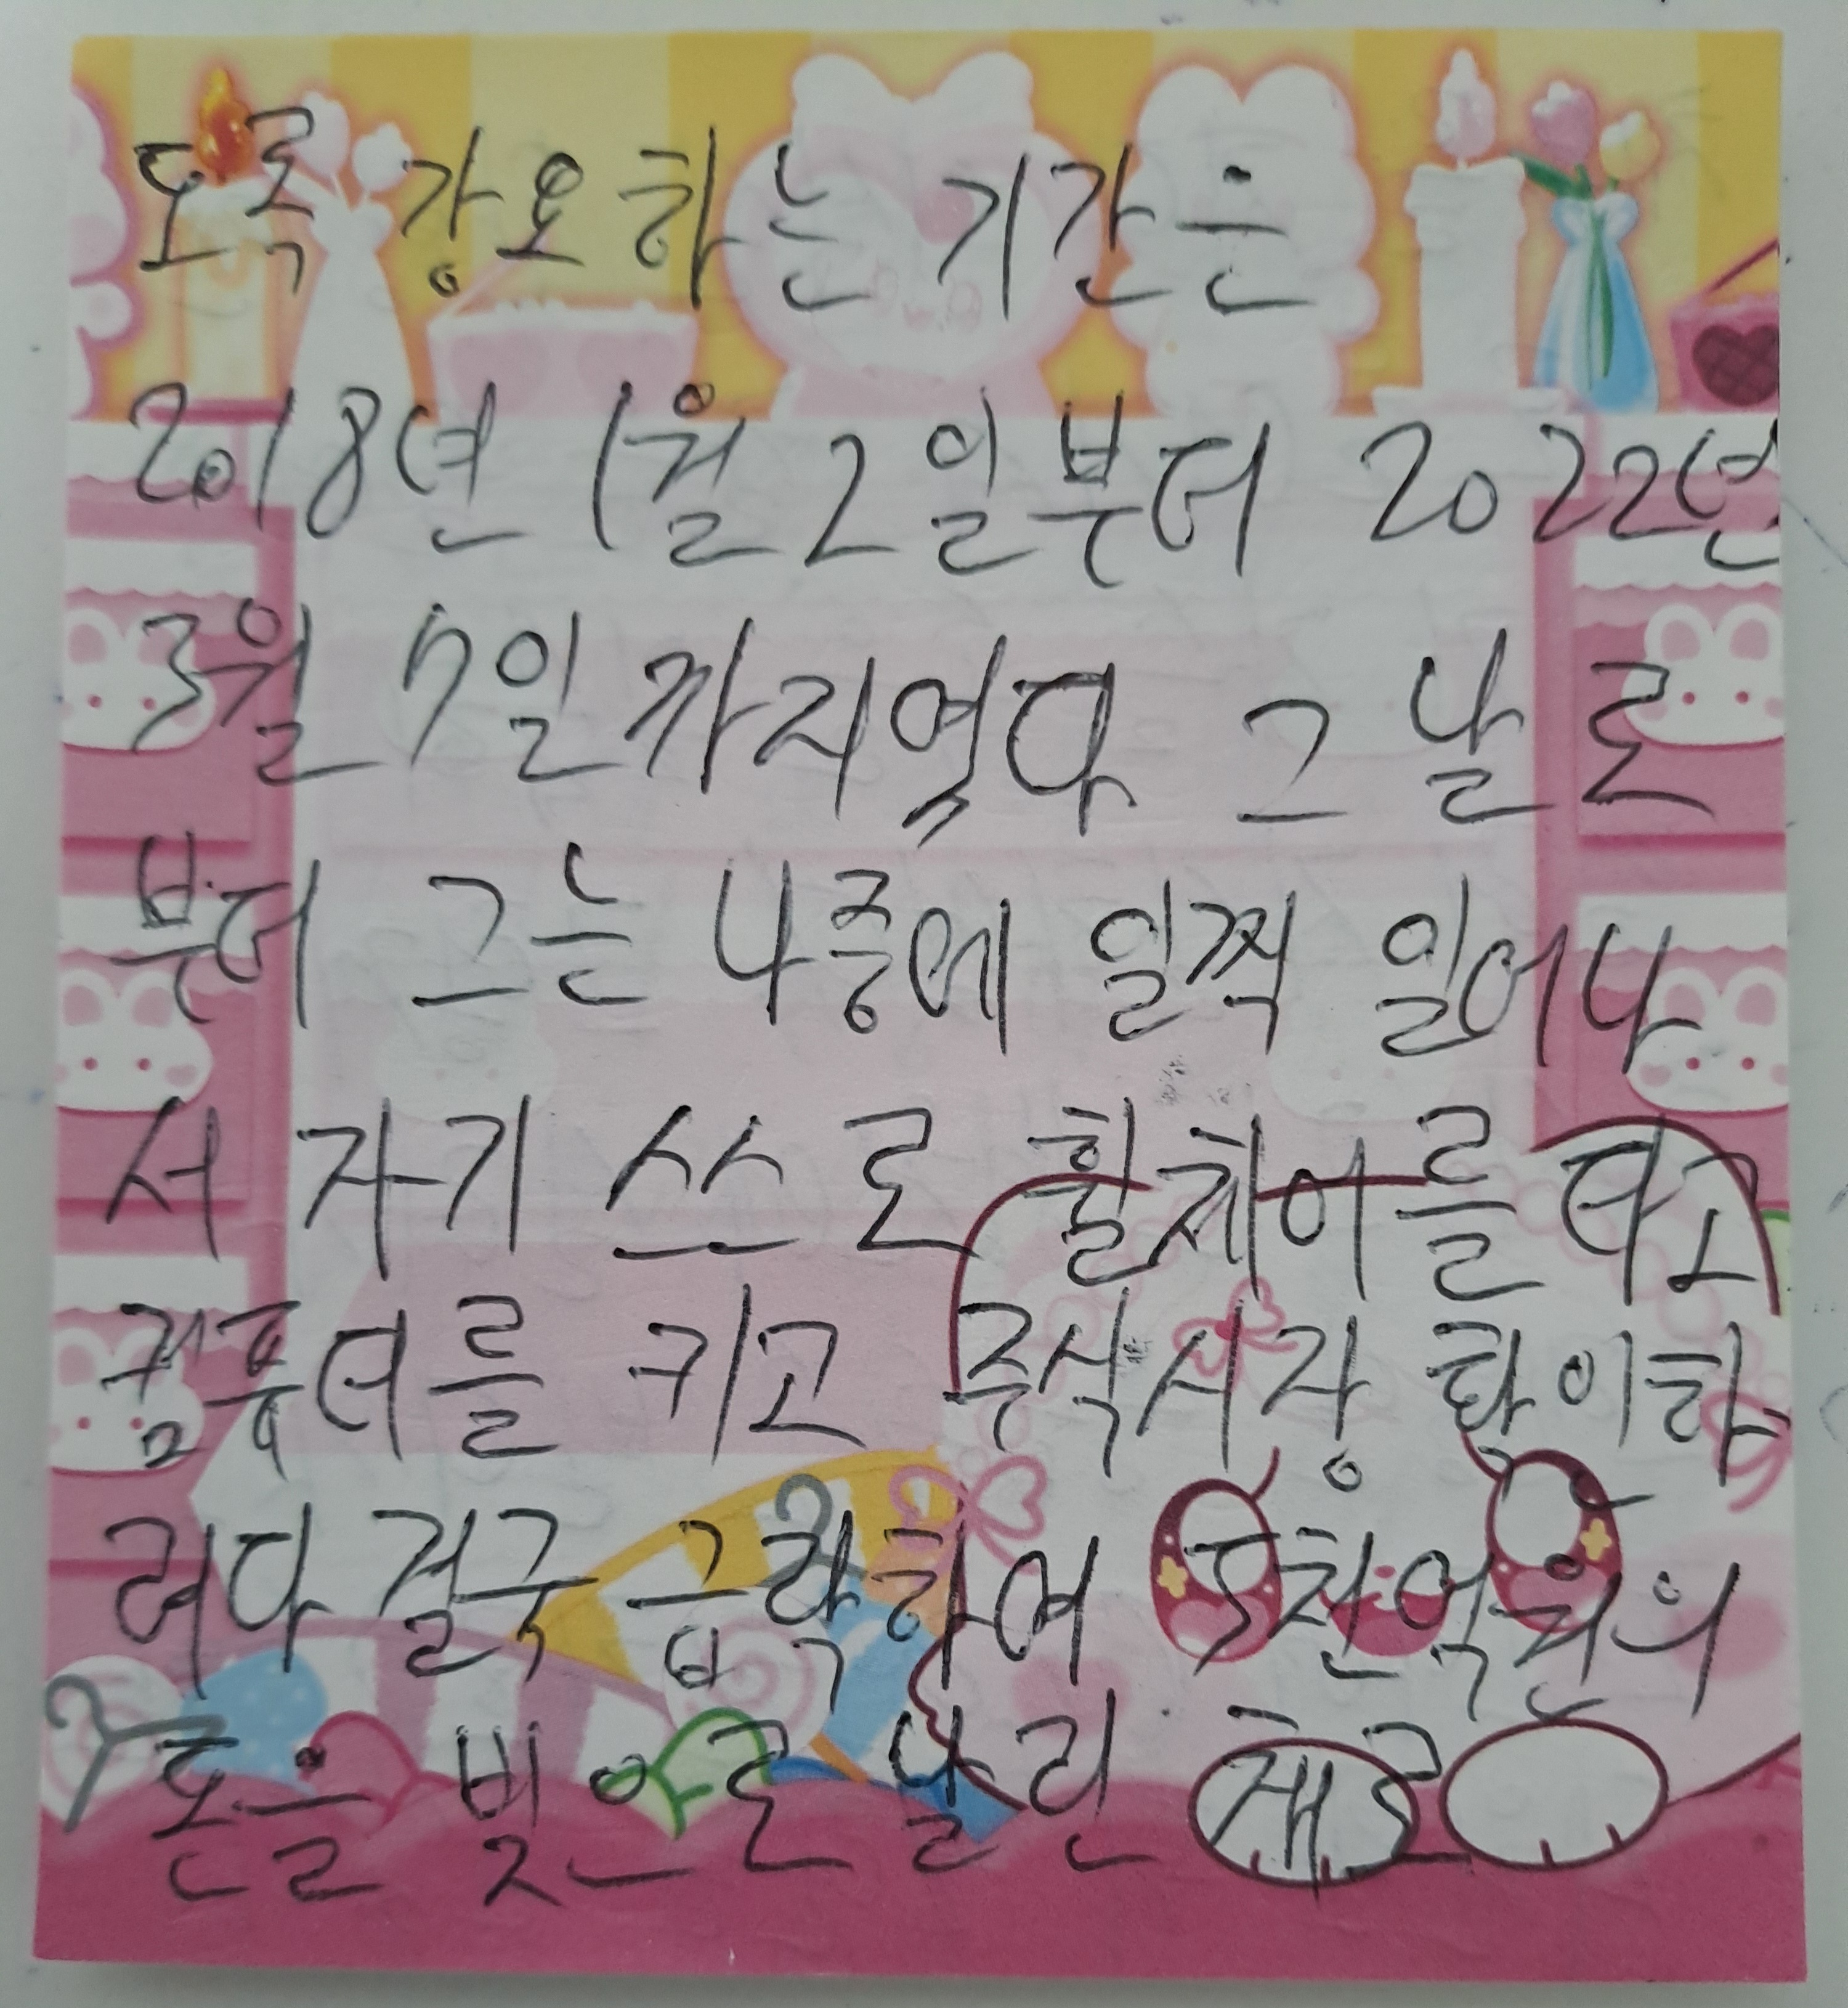 도록 강요하는 기간은
2018년 1월 2일부터 2022년
3월 7일까지였다 그 날로
부터 그는 나중에 일찍 일어나
서 자기 스스로 휠체어를 타고
컴퓨터를 키고 주식시장 확인하
려다 결국 급락하여 5천억원의
돈을 빚으로 날린 채로